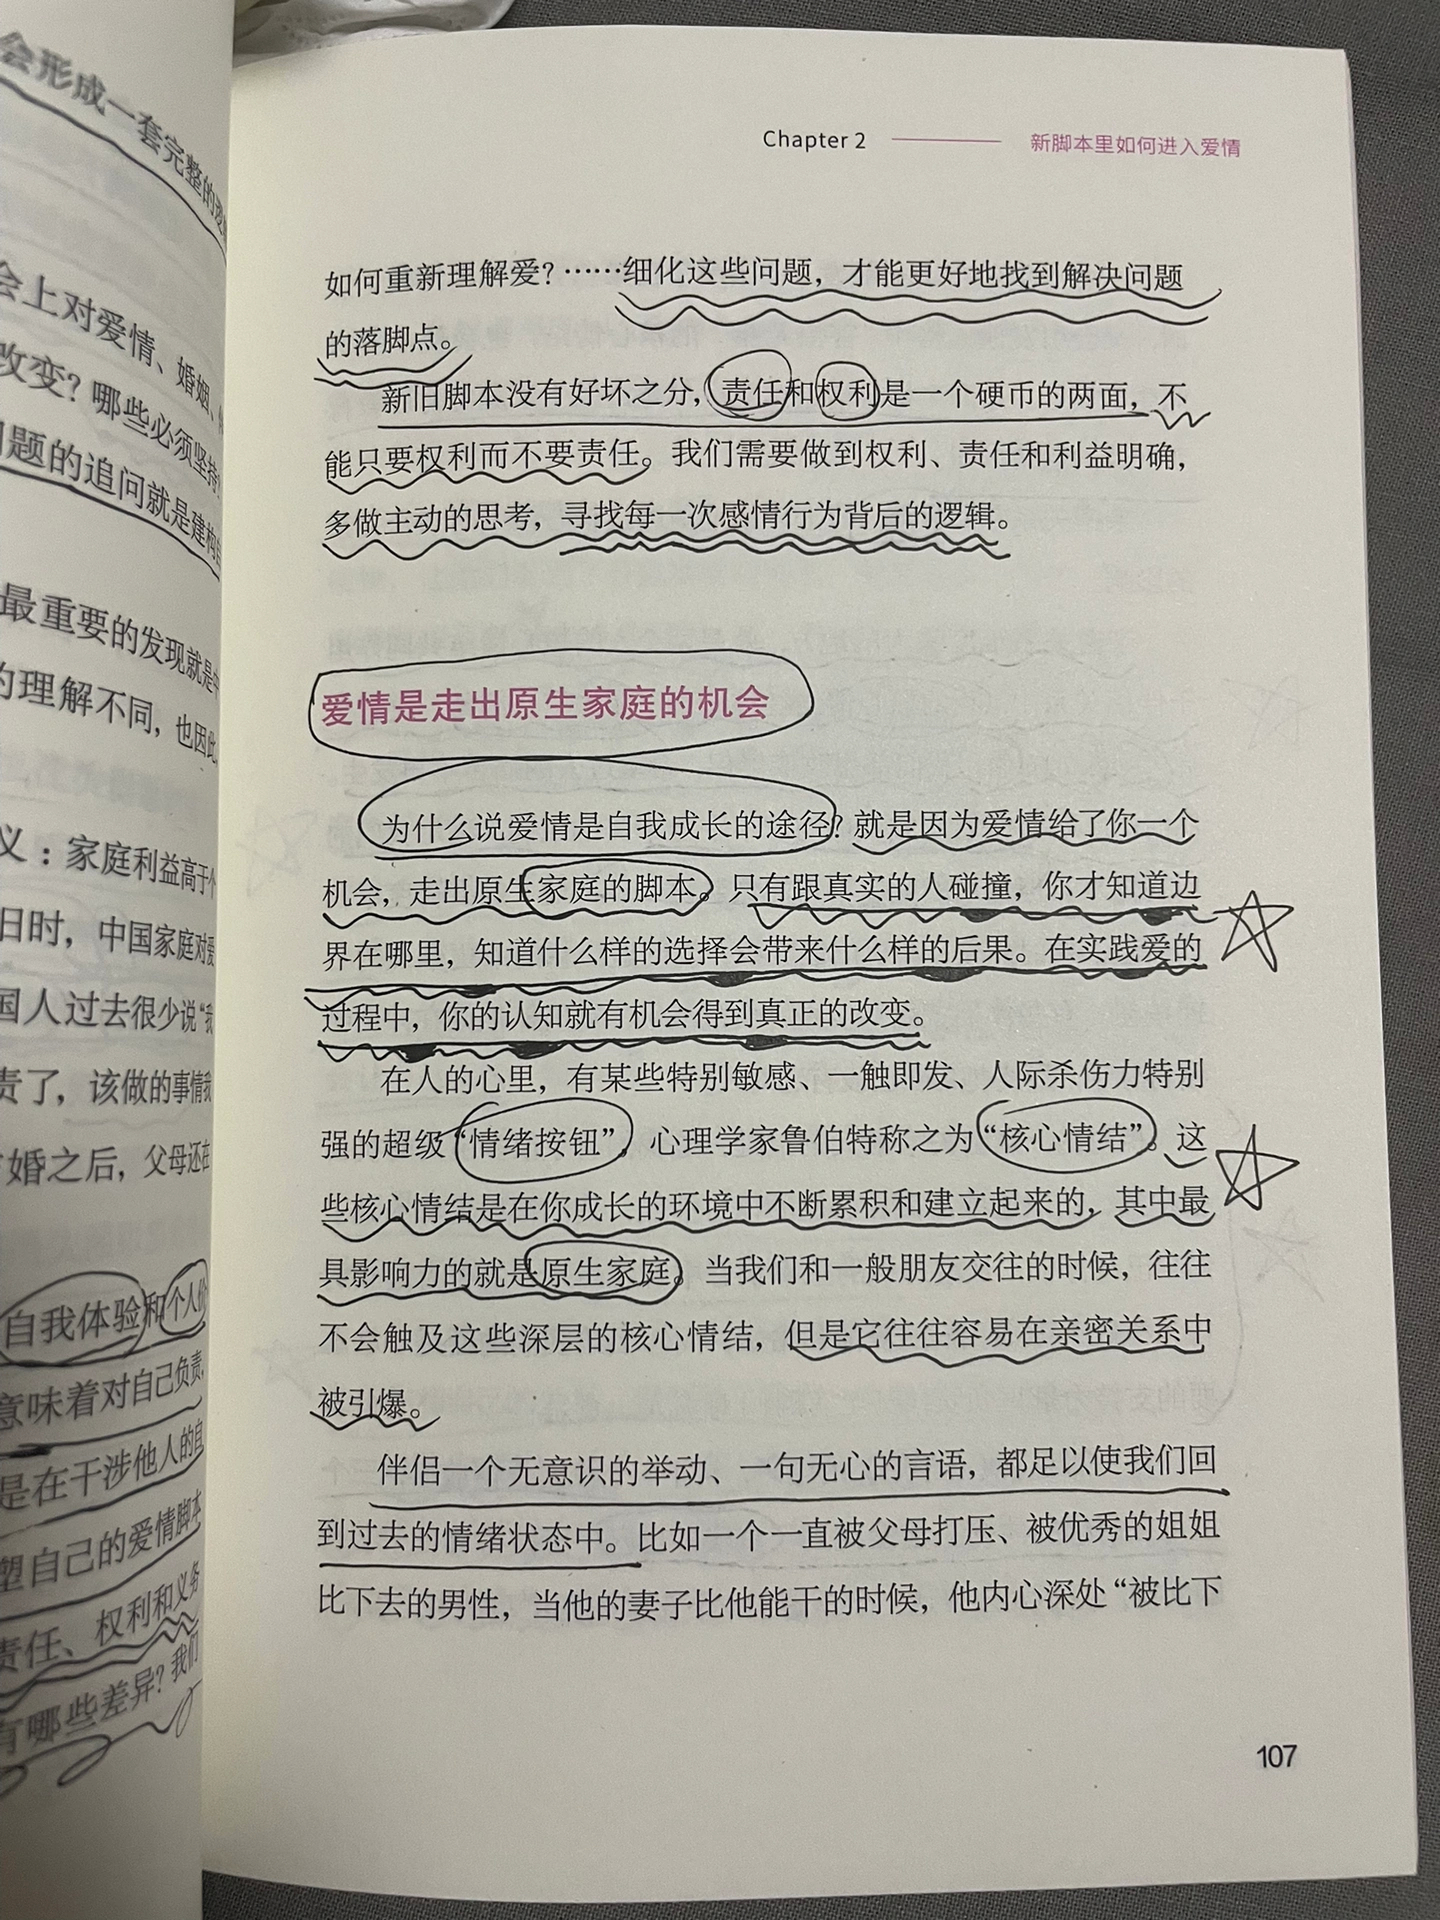 会形成一套完整的逻
会上对爱情、婚姻、
改变？哪些必须坚持
问题的追问就是建构
最重要的发现就是中
的理解不同，也因此
义：家庭利益高于个
旧时，中国家庭对爱
国人过去很少说“我
责了，该做的事情我
婚之后，父母还在
自我体验和个人价
意味着对自己负责，
是在干涉他人的自
塑自己的爱情脚本
责任、权利和义务
有哪些差异？我们
Chapter 2 新脚本里如何进入爱情
如何重新理解爱？……细化这些问题，才能更好地找到解决问题
的落脚点。
新旧脚本没有好坏之分，责任和权利是一个硬币的两面，不
能只要权利而不要责任。我们需要做到权利、责任和利益明确，
多做主动的思考，寻找每一次感情行为背后的逻辑。
爱情是走出原生家庭的机会
为什么说爱情是自我成长的途径？就是因为爱情给了你一个
机会，走出原生家庭的脚本。只有跟真实的人碰撞，你才知道边
界在哪里，知道什么样的选择会带来什么样的后果。在实践爱的
过程中，你的认知就有机会得到真正的改变。
在人的心里，有某些特别敏感、一触即发、人际杀伤力特别
强的超级“情绪按钮”，心理学家鲁伯特称之为“核心情结”。这
些核心情结是在你成长的环境中不断累积和建立起来的，其中最
具影响力的就是原生家庭。当我们和一般朋友交往的时候，往往
不会触及这些深层的核心情结，但是它往往容易在亲密关系中
被引爆。
伴侣一个无意识的举动、一句无心的言语，都足以使我们回
到过去的情绪状态中。比如一个一直被父母打压、被优秀的姐姐
比下去的男性，当他的妻子比他能干的时候，他内心深处“被比下
107